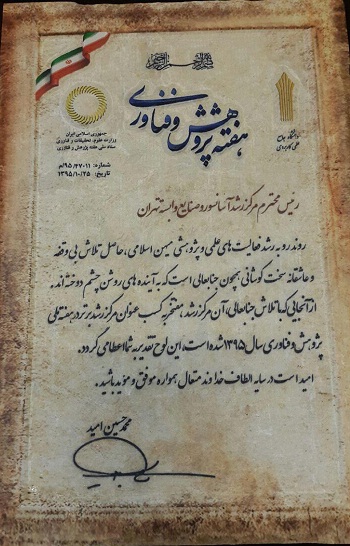 بسم الله الرحمن الرحیم
هفته پژوهش و فناوری
جمهوری اسلامی ایران
وزارت علوم، تحقیقات و فناوری
ستاد ملی هفته پژوهش و فناوری
شماره: ۹۵/۴۷۰۱۱/م
تاریخ: ۱۳۹۵/۱۰/۲۵
دانشگاه جامع
علمی کاربردی
رئیس محترم مرکز رشد آسانسور و صنایع وابسته تهران
روند رو به رشد فعالیت‌های علمی و پژوهشی میهن اسلامی، حاصل تلاش بی وقفه
و عاشقانه سخت کوشانی همچون جنابعالی است که به آینده‌های روشن چشم دوخته‌اند.
از آنجایی که با تلاش جنابعالی، آن مرکز رشد، مفتخر به کسب عنوان مرکز رشد برتر در هفته ملی
پژوهش و فناوری سال ۱۳۹۵ شده است، این لوح تقدیر به شما اعطا می گردد.
امید است در سایه الطاف خداوند متعال همواره موفق و مؤید باشید.
محمد حسین امید